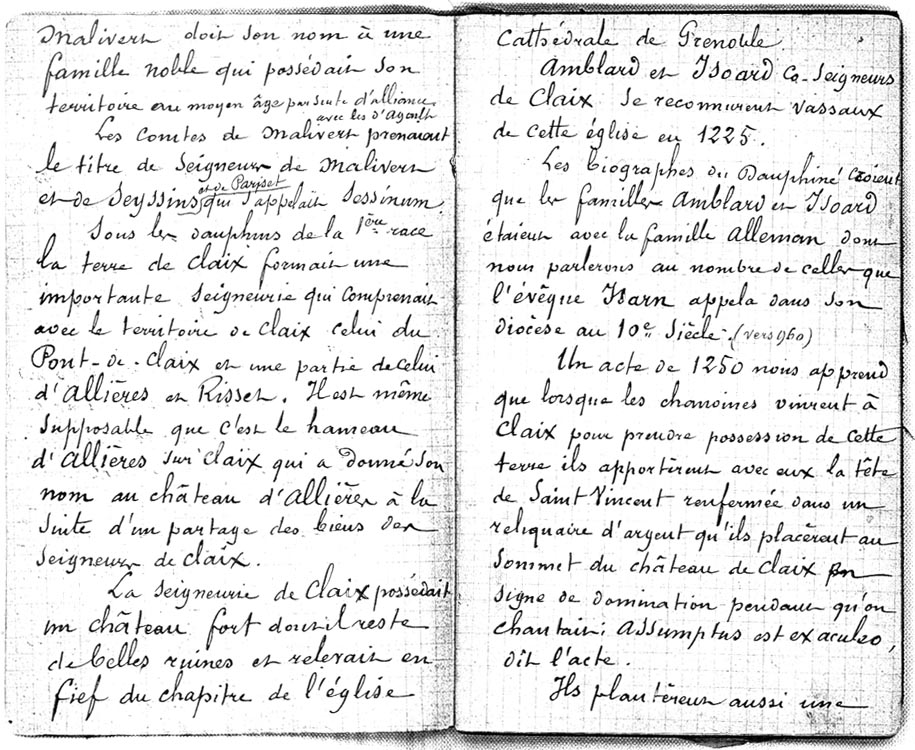 Malivert doit son nom à une
famille noble qui possédait son
territoire au moyen âge par suite d'alliance
avec les d'Agoult
Les Comtes de Malivert prenaient
le titre de Seigneurs de Malivert
et de Seyssins et de Pariset qui s'appelait Sessinum.
Sous les dauphins de la 1ère race
la terre de Claix formait une
importante Seigneurie qui comprenait
avec le territoire de Claix celui du
Pont-de-Claix et une partie de celui
d'Allières et Risset. Il est même
supposable que c'est le hameau
d'Allières sur Claix qui a donné son
nom au château d'Allières à la
suite d'un partage des biens des
Seigneurs de Claix.
La Seigneurie de Claix possédait
un château fort dont il reste
de belles ruines et relevait en
fief du chapitre de l'église
Cathédrale de Grenoble
Amblard et Isoard Co-Seigneurs
de Claix se reconnurent vassaux
de cette église en 1225.
Les biographes du Dauphiné croient
que les familles Amblard et Isoard
étaient avec la famille Alleman dont
nous parlerons au nombre de celles que
l'évêque Isarn appela dans son
diocèse au 10e Siècle. (vers 960)
Un acte de 1250 nous apprend
que lorsque les chanoines vinrent à
Claix pour prendre possession de cette
terre ils apportèrent avec eux la tête
de Saint Vincent renfermée dans un
reliquaire d'argent qu'ils placèrent au
sommet du château de Claix en
signe de domination pendant qu'on
chantait: Assumptus est ex aculeo,
dit l'acte.
Ils plantèrent aussi une